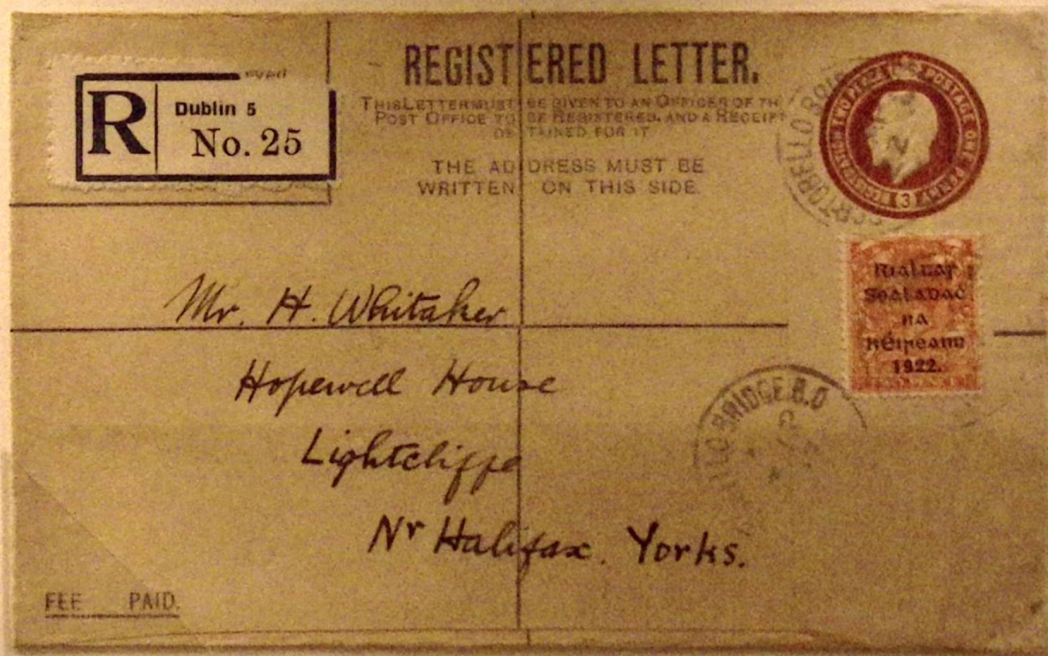 REGISTERED LETTER.
THIS LETTER MUST BE GIVEN TO AN OFFICER OF TH
POST OFFICE TO BE REGISTERED, AND A RECEIPT
OBTAINED FOR IT
THE ADDRESS MUST BE
WRITTEN ON THIS SIDE.
R
Dublin 5
No. 25
POSTAGE ONE PENNY
3
Rialtar
Sealadac
na
hÉireann
1922.
Mr. H. Whitaker
Hopewell House
Lightcliffe
Nr Halifax. Yorks.
BRIDGE B.O
FEE PAID.